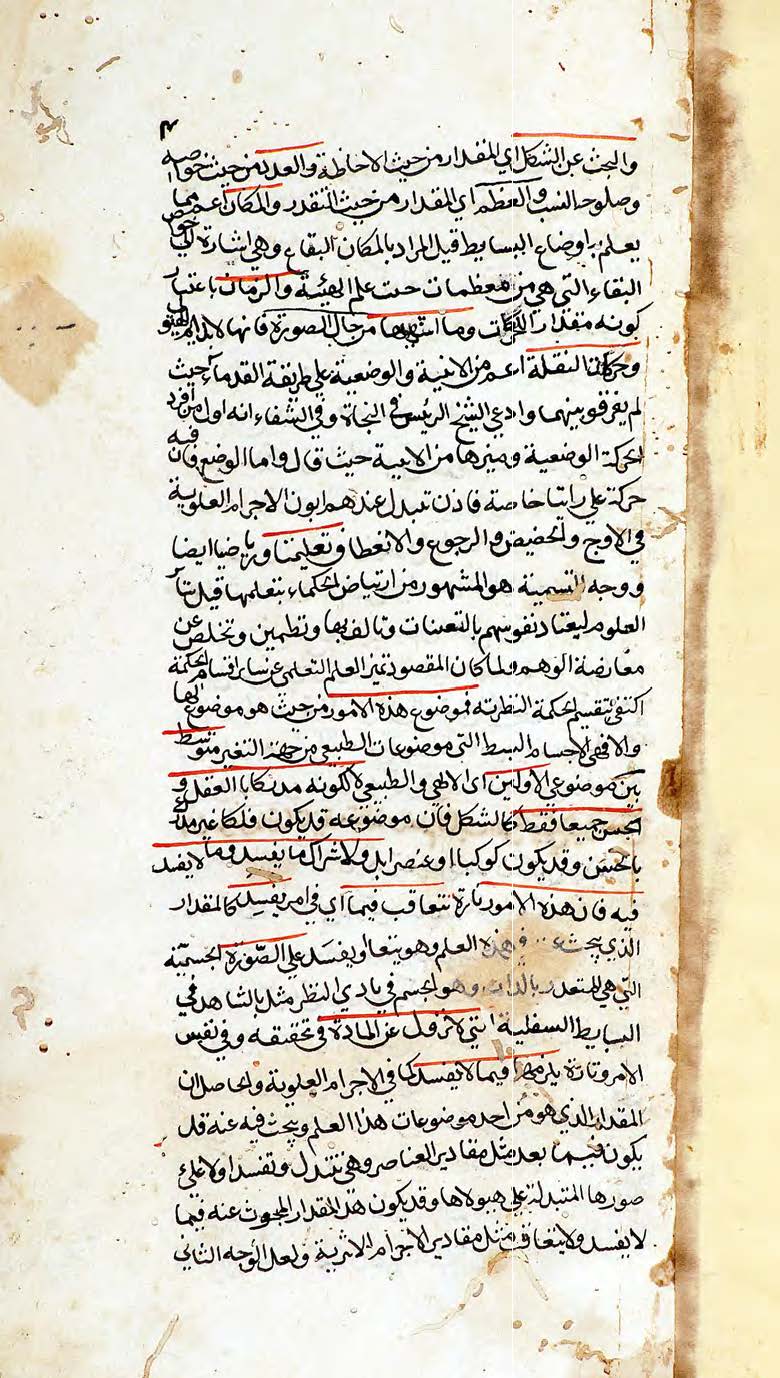 والبحث عن الشكل اي المقدار من حيث الاحاطة والعدد من حيث خواصه
وصلوحه النسب والعظم اي المقدار من حيث التقدر والمكان اعم مما
يعلم باوضاع البسايط قيل المراد بالمكان البقاع وهي اشارة الى خواص
البقاع التي هي من معظمات تحت علم الهيئة والزمان باعتبار
كونه مقدار وما من حال الصورة فانها لابد
وحركات النقلة اعم من الاينية والوضعية على طريقة القدماء حيث
لم يفرقو بينهما وادعي الشيخ الرئيس في النجاة وفي الشفاء انه اول من افرد
الحركة الوضعية وميزها من الاينية حيث قال واما الوضع فان فيه
حركة على راينا خاصة فاذن تبدل عندهم ابون الاجرام العلوية
في الاوج والحضيض والرجوع والانعطاف وتعليمنا ورياضيا ايضا
ووجه التسمية هو المشهور من ارتياض الحكماء بتعلمها قيل ساير
العلوم ليعتاد نفوسهم بالتعينات وتالف بها وتطمين وتخلص عن
معارضة الوهم ولما كان المقصود تميز العلم التعلمي عن ساير اقسام الحكمة
اكتفى بتقسيم الحكمة النظرته فموضوع هذه الامور من حيث هو موضوع لها
والا فهى الاجسام البسط التي موضوعات الطبيعي من جهة التغير متوسط
بين موضوعي الاولين اى الالهي والطبيعي لا لكونه مدركا بالعقل و
الحس جميعا فقط كالشكل فان موضوعه قد يكون فلكا غير مدرك
بالحس وقد يكون كوكبا او عنصرا بل ولاشراك ما يفسد وما لا يفسد
فيه فان هذه الامور تارة تتعاقب فيما اي في امر يفسد كالمقدار
الذي يبحث هذه العلم وهو يتعاو يفسد على الصورة الجسمية
التي هي المتعدر بالذات وهو الجسم في بادي النظر مثل بالشاهد في
البسايط السفلية التي لا تزول عن المادة في تحققه وفي نفس
الامر وتارة يلزمها فيما لا يفسد كما في الاجرام العلوية والحاصل ان
المقدار الذي هو من احد موضوعات هذا العلم ويبحث فيه عنه قد
يكون فيما بعد مثل مقادير العناصر وهى تتبدل وتفسد اولا على
صورها المتبدلة على هيولاها وقد يكون هذ المقدار المبحوث عنه فيما
لا يفسد ولا يتعاقب مثل مقادير الاجرام الاثرية ولعل الوجه الثاني